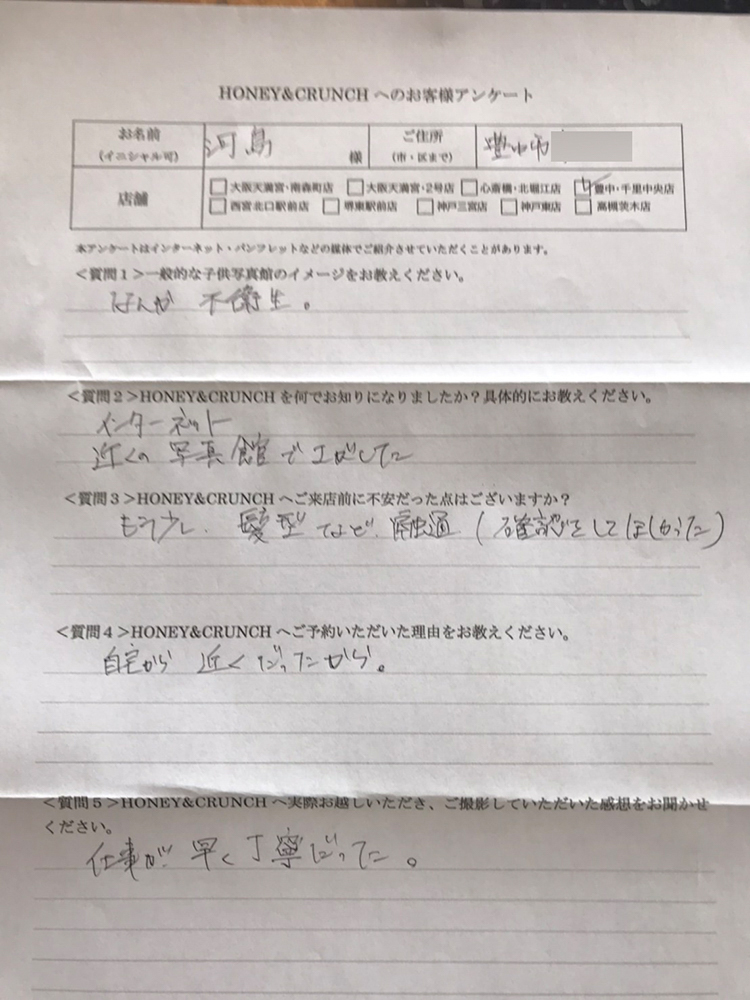 HONEY&CRUNCH へのお客様アンケート
お名前
(イニシャル可)
河島
様
ご住所
(市・区まで)
豊中市
店舗
大阪天満宮・南森町店 大阪天満宮・2号店 心斎橋・北堀江店 豊中・千里中央店
西宮北口駅前店 堺東駅前店 神戸三宮店 神戸東店 高槻茨木店
本アンケートはインターネット・パンフレットなどの媒体でご紹介させていただくことがあります。
<質問1>一般的な子供写真館のイメージをお教えください。
なんか 不衛生。
<質問2>HONEY&CRUNCH を何でお知りになりましたか?具体的にお教えください。
インターネット
近くの写真館でさがしてた
<質問3>HONEY&CRUNCH へご来店前に不安だった点はございますか?
もう少し、髪型など、融通(確認をしてほしかった)
<質問4>HONEY&CRUNCH へご予約いただいた理由をお教えください。
自宅から 近くだったから。
<質問5>HONEY&CRUNCH へ実際お越しいただき、ご撮影していただいた感想をお聞かせ
ください。
仕事が 早く丁寧だった。